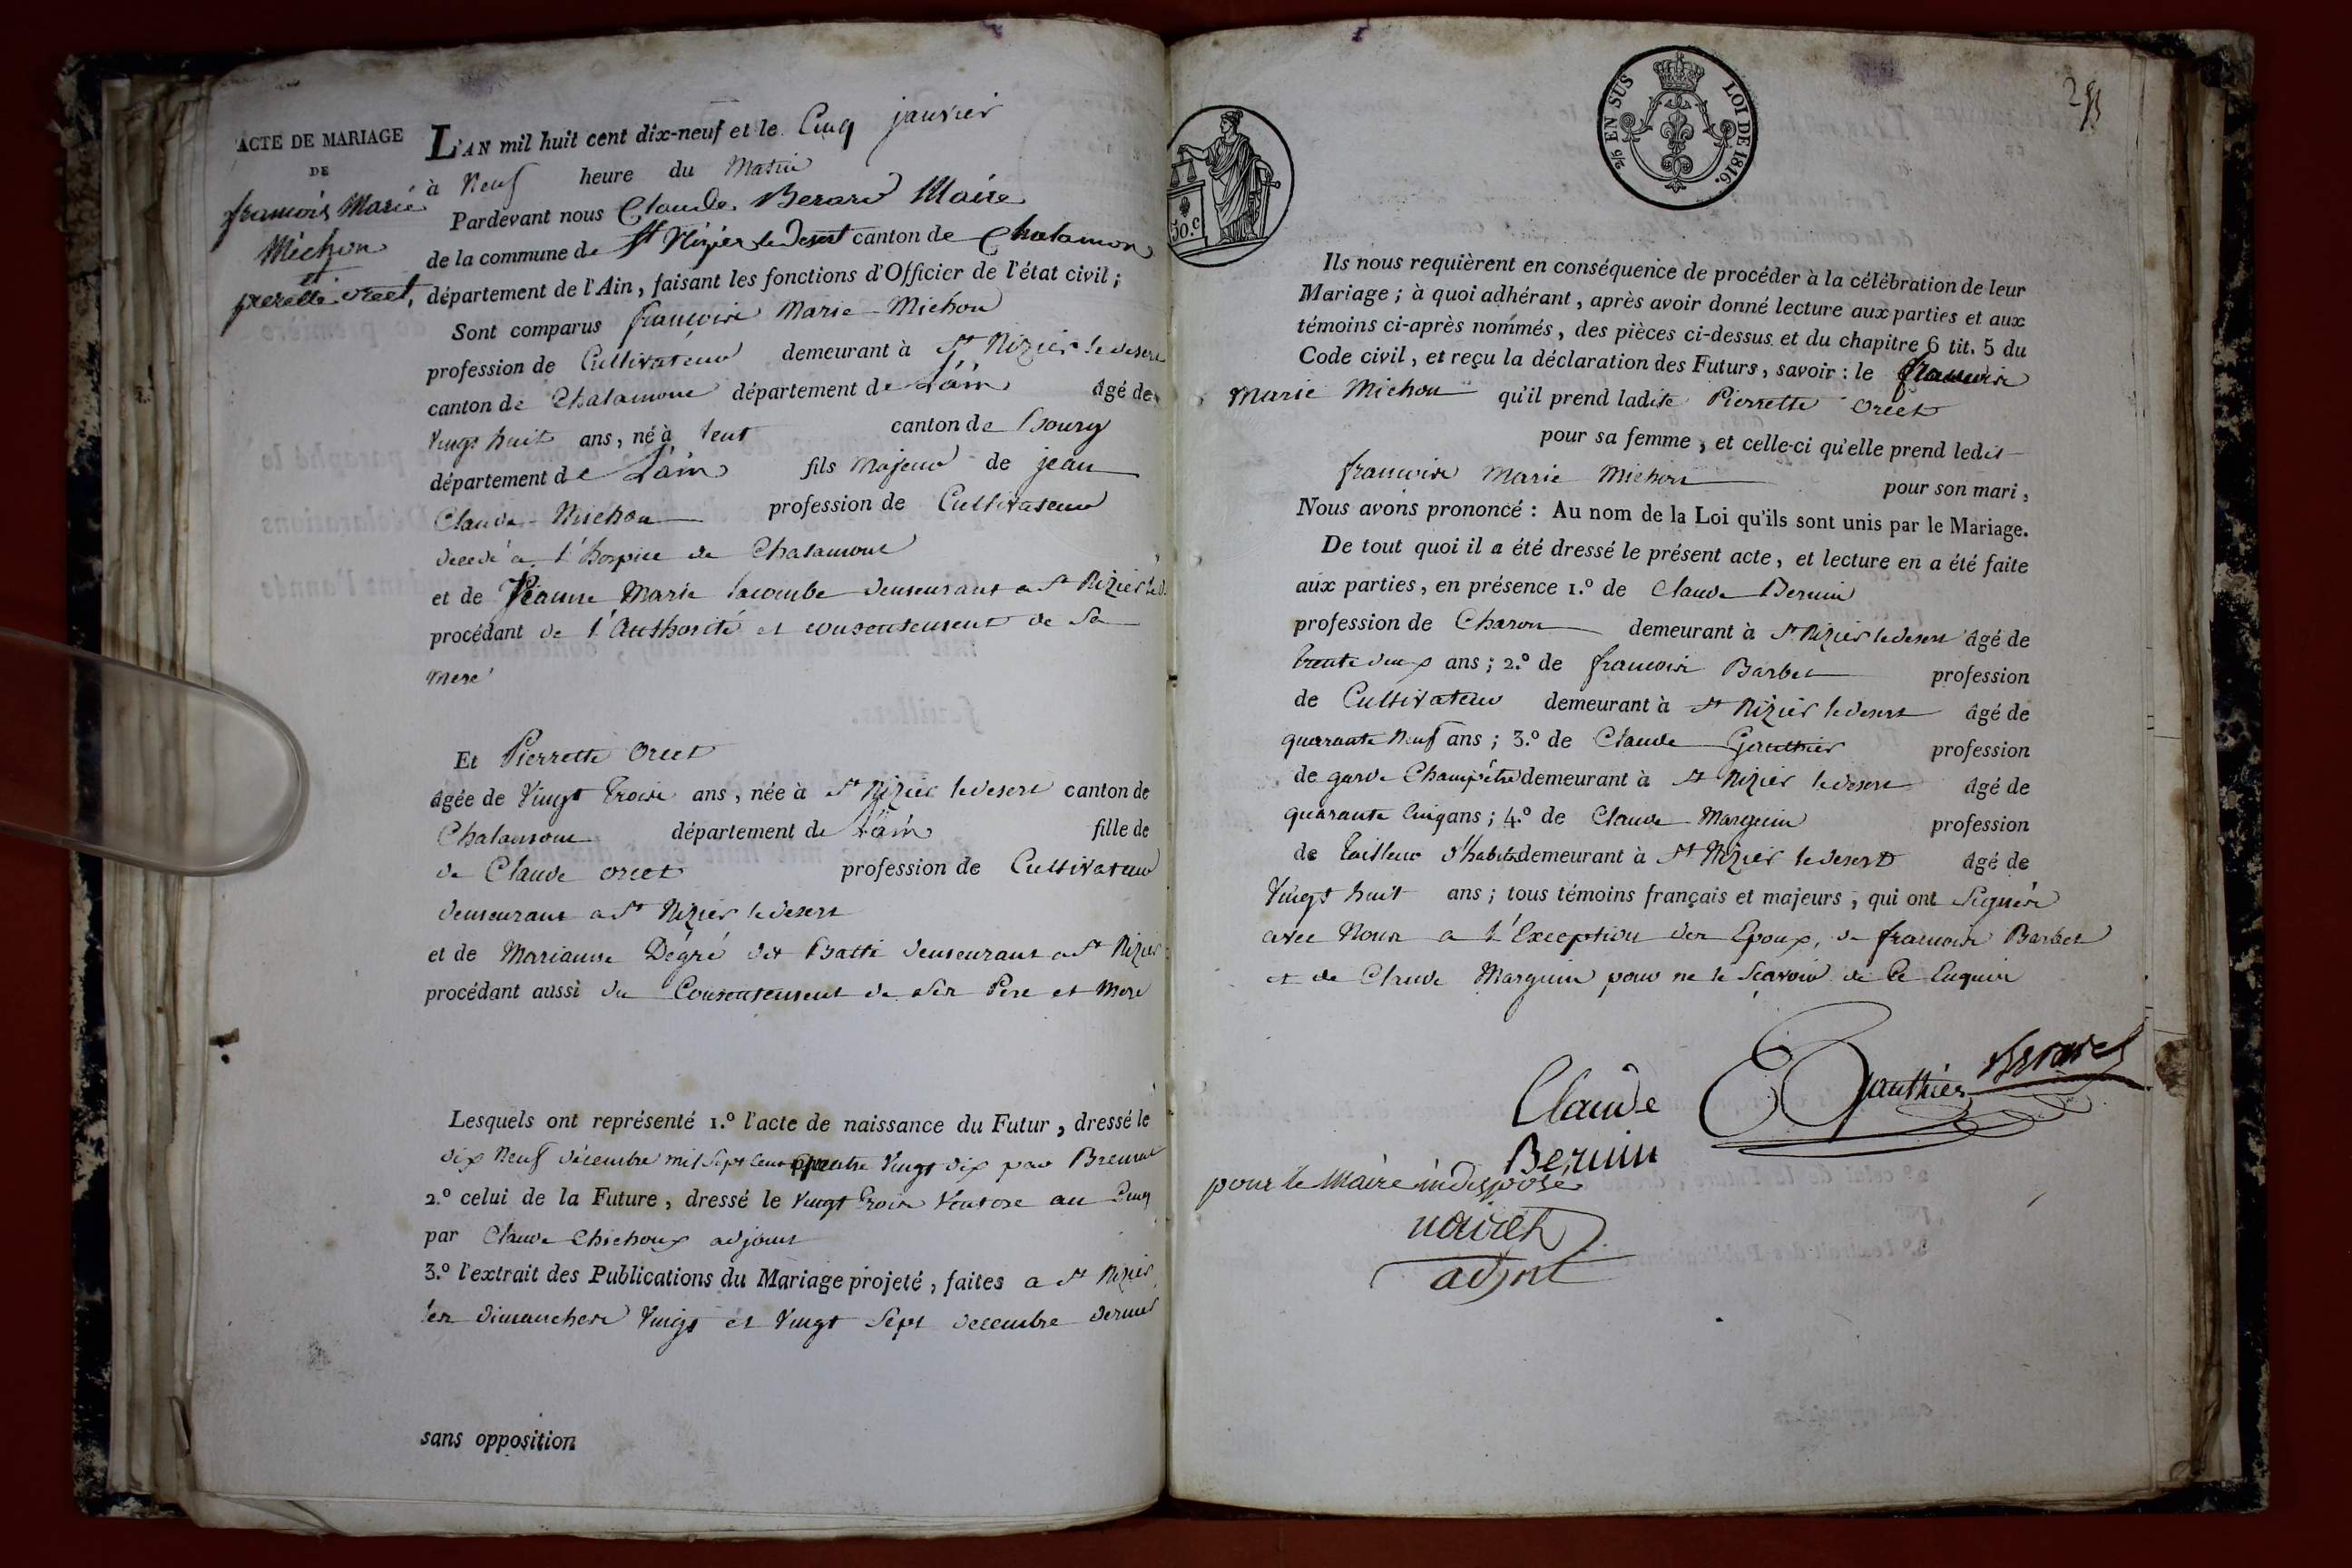 ACTE DE MARIAGE
DE
francois Marie
Michon
et
pierette orcet,
L'AN mil huit cent dix-neuf et le Cinq janvier
à Neuf heure du Matin
Pardevant nous Claude Berard Maire
de la commune de St Nizier le Desert canton de Chalamon
département de l'Ain, faisant les fonctions d'Officier de l'état civil;
Sont comparus francois Marie Michon
profession de Cultivateur demeurant à St Nizier le desert
canton de Chalamont département de L'ain âgé de
Vingt huit ans, né à canton de bourg
département de L'ain fils Majeur de jean
Claude Michon profession de Cultivateur
decedé a L'hospice de Chalamont
et de Jeanne Marie lacombe demeurant a St Nizier le d.
procédant de L'Authorité et consentement de Sa
mere
Et Pierrette Orcet
âgée de Vingt Trois ans, née à St Nizier le desert canton de
Chalamont département de L'ain fille de
de Claude orcet profession de Cultivateur
demeurant a St Nizier le desert
et de Marianne Degré dit Batti demeurant a St Nizier
procédant aussi du Consentement de Ses Pere et Mere
Lesquels ont représenté 1.º l'acte de naissance du Futur, dressé le
dix Neuf décembre mil Sept Cent quatre Vingt dix par
2.º celui de la Future, dressé le Vingt Trois Ventose an
par Claude Chichoux adjoint
3.º l'extrait des Publications du Mariage projeté, faites a St Nizier
les dimanches Vingt et Vingt Sept decembre dernier
sans opposition
50.c
2/5 EN SUS LOI DE 1816.
Ils nous requièrent en conséquence de procéder à la célébration de leur
Mariage; à quoi adhérant, après avoir donné lecture aux parties et aux
témoins ci-après nommés, des pièces ci-dessus et du chapitre 6 tit. 5 du
Code civil, et reçu la déclaration des Futurs, savoir: le francois
Marie Michon qu'il prend ladite Pierrette Orcet
pour sa femme, et celle-ci qu'elle prend ledit
francois Marie Michon pour son mari,
Nous avons prononcé: Au nom de la Loi qu'ils sont unis par le Mariage.
De tout quoi il a été dressé le présent acte, et lecture en a été faite
aux parties, en présence 1.º de Claude Bernin
profession de Charon demeurant à St Nizier le desert âgé de
trente deux ans; 2.º de francois Barbet profession
de Cultivateur demeurant à St Nizier le desert âgé de
quarante Neuf ans; 3.º de Claude Gauthier profession
de garde Champêtre demeurant à St Nizier le desert âgé de
quarante Cinq ans; 4.º de Claude Marguin profession
de Tailleur d'habits demeurant à St Nizier le desert âgé de
Vingt huit ans; tous témoins français et majeurs, qui ont Signés
avec Nous a L'Exception des Epoux, de francois Barbet
et de Claude Marguin pour ne le Scavoir de Ce Enquis
Claude Gauthier Berard
Bernin
pour le Maire indisposé
adjoint